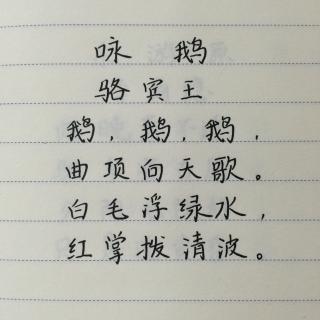 咏 鹅
骆宾王
鹅，鹅，鹅，
曲项向天歌。
白毛浮绿水，
红掌拨清波。